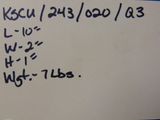 KSCU/243/020/Q3
L-10"
W-2"
H-1"
Wgt.-7Lbs.